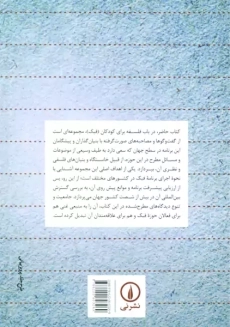 کتاب حاضر، در باب فلسفه برای کودکان (فبک)، مجموعه‌ای است
از گفت‌وگوها و مصاحبه‌های صورت‌گرفته با بنیان‌گذاران و پیشگامان
این برنامه در سطح جهان که سعی دارد به طیف وسیعی از موضوعات
و مسائل مطرح در این حوزه، از قبیل خاستگاه و بنیان‌های فلسفی
و نظری آن، بپردازد. یکی از اهداف اصلی این مجموعه آشنایی با
نحوه اجرای برنامه فبک در کشورهای مختلف است؛ از این رو، پس
از ارزیابی پیشرفت برنامه و موانع پیش روی آن، به بررسی گسترش
بین‌المللی آن در بیش از شصت کشور جهان می‌پردازد. جامعیت و
تنوع دیدگاه‌های مطرح‌شده در این کتاب، آن را به منبعی غنی هم
برای فعالان حوزه فبک و هم برای علاقه‌مندان آن تبدیل کرده است.
نشر نی